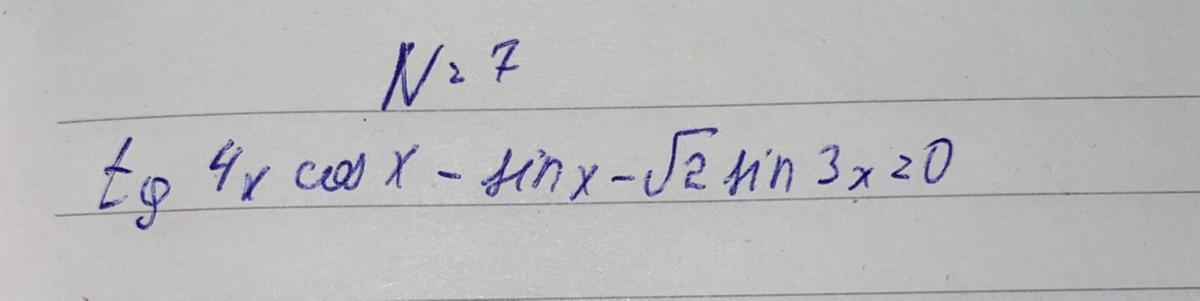 N = 7
tg 4x cos x - sin x - √2 sin 3x = 0